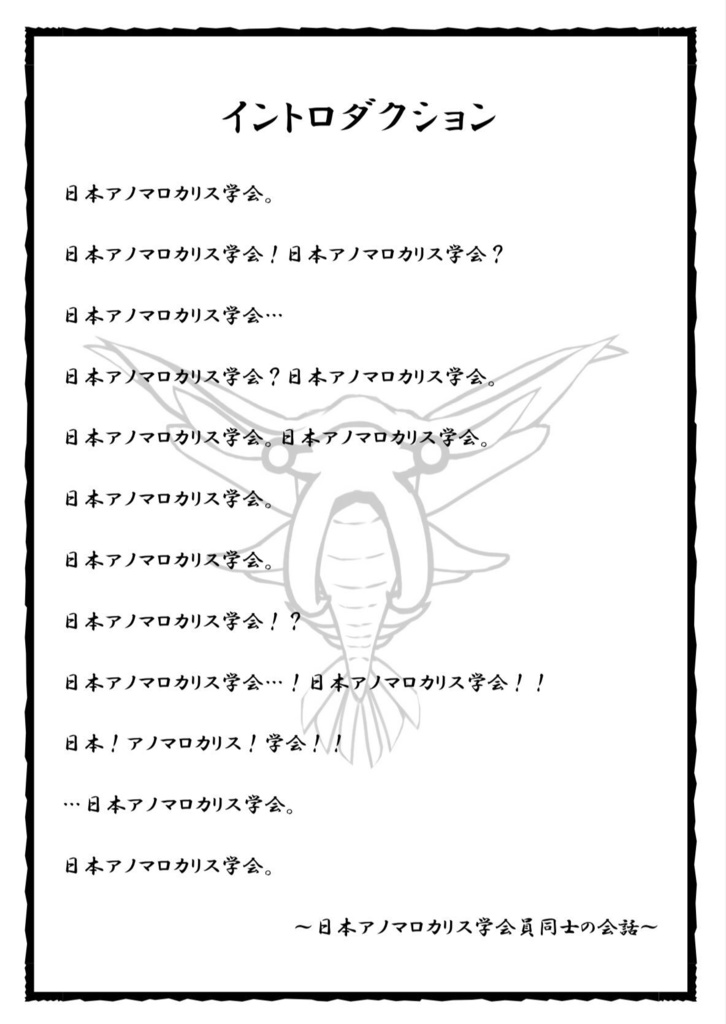 イントロダクション
日本アノマロカリス学会。
日本アノマロカリス学会！日本アノマロカリス学会？
日本アノマロカリス学会…
日本アノマロカリス学会？日本アノマロカリス学会。
日本アノマロカリス学会。日本アノマロカリス学会。
日本アノマロカリス学会。
日本アノマロカリス学会。
日本アノマロカリス学会！？
日本アノマロカリス学会…！日本アノマロカリス学会！！
日本！アノマロカリス！学会！！
…日本アノマロカリス学会。
日本アノマロカリス学会。
～日本アノマロカリス学会員同士の会話～